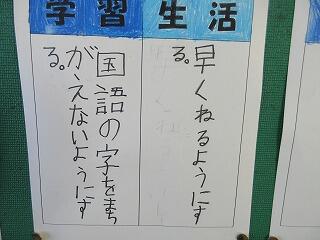 学習
国語の字をまち
がえないようにす
る。
生活
早くねるようにす
る。